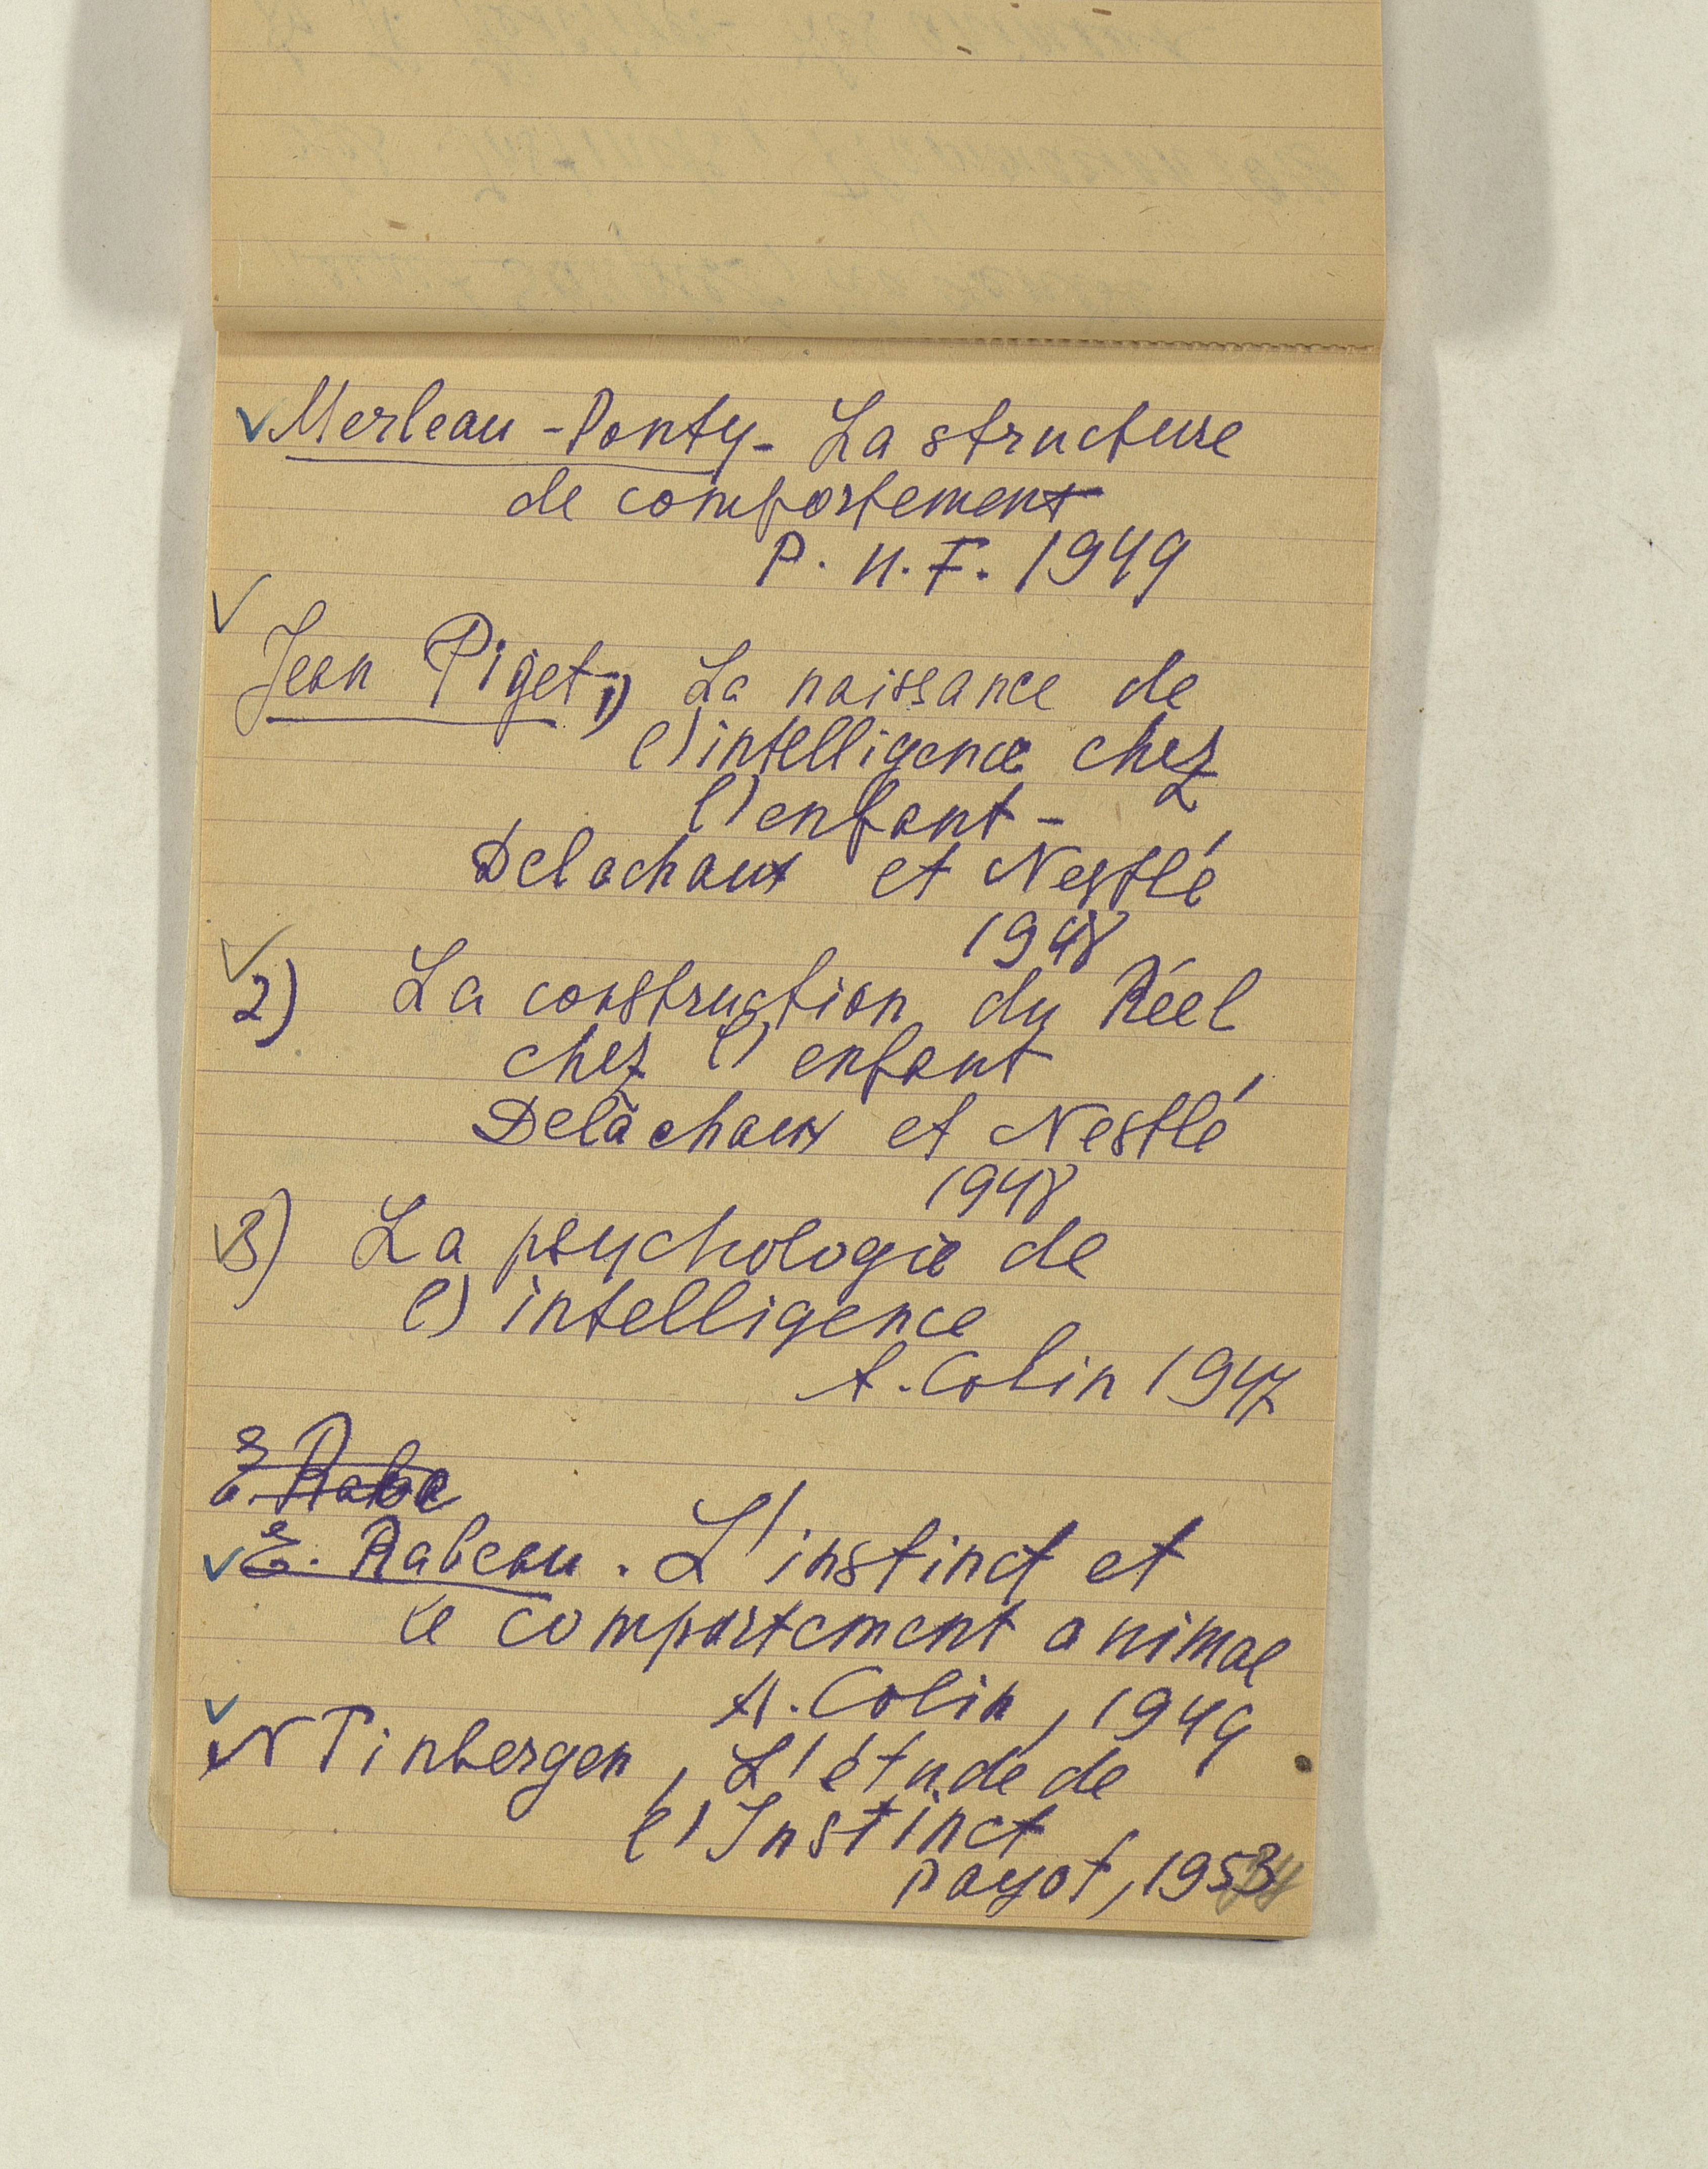 Merleau-Ponty - La structure
de comportement
P. U. F. 1949
Jean Piget, 1) La naissance de
l'intelligence chez
l'enfant -
Delachaux et Nestlé
1948
2) La construction du Réel
chez l'enfant
Delachaux et Nestlé
1948
3) La psychologie de
l'intelligence
A. Colin 1947
E. Rabe
E. Rabeau. L'instinct et
le comportement animal
A. Colin, 1949
N Tinbergen, L'étude de
l'Instinct
Payot, 1953